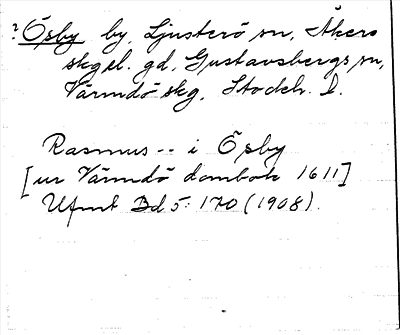 ? Ösby by, Ljusterö sn, Åkers
skg el. gd, Gustavsbergs sn,
Värmdö skg, Stockh. l.
Rasmus -- i Ösby
[ur Värmdö dombok 1611]
Ufmt Bd 5: 170 (1908).